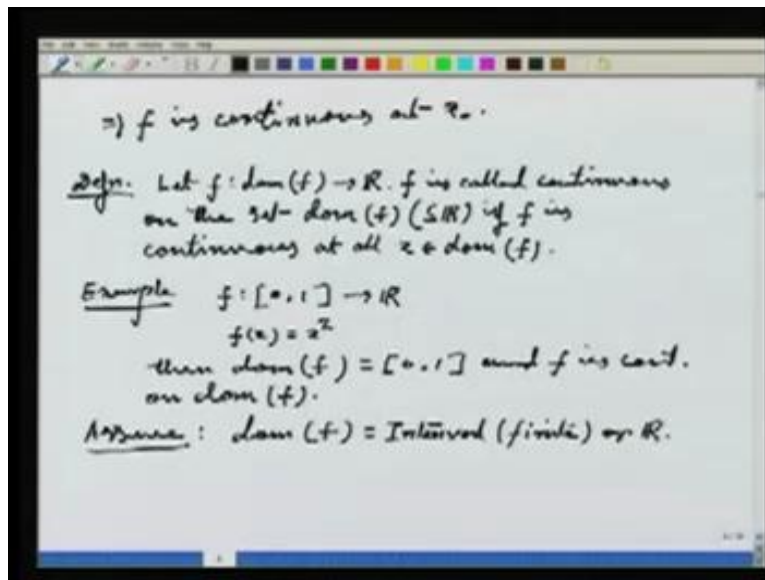 ⇒ f is continuous at x₀.
Defn. Let f : dom(f) → ℝ. f is called continuous
on the set dom(f) (⊆ ℝ) if f is
continuous at all x ∈ dom(f).
Example f : [0,1] → ℝ
f(x) = x²
then dom(f) = [0,1] and f is cont.
on dom(f).
Assume : dom(f) = Interval (finite) or ℝ.